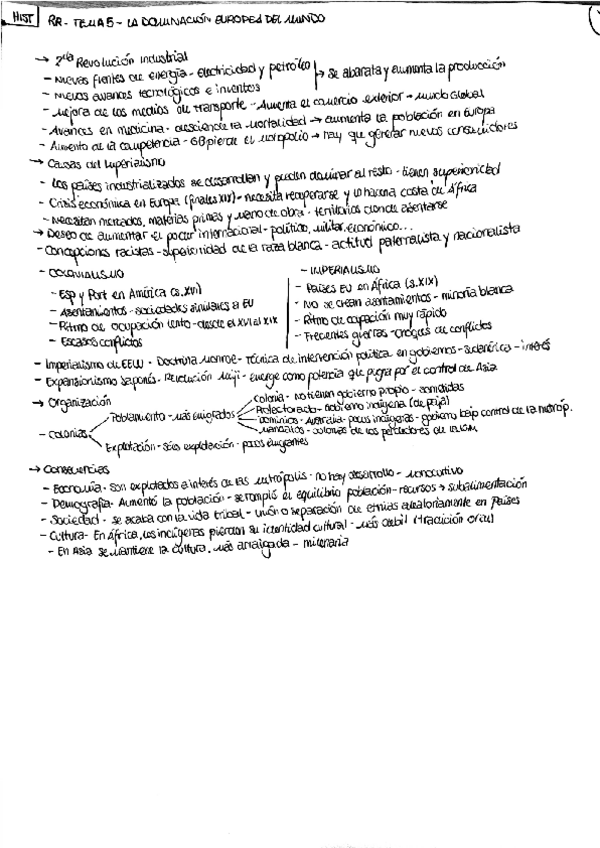 HIST RR- TEMA 5 - LA DOMINACIÓN EUROPEA DEL MUNDO
→ 2ª Revolución Industrial
- Nuevas fuentes de energía - Electricidad y petróleo
- Nuevos avances tecnológicos e inventos → se abarata y aumenta la producción
- Mejora de los medios de transporte - Aumenta el comercio exterior → Mundo Global
- Avances en medicina - desciende la mortalidad → aumenta la población en Europa
- Aumento de la competencia - GB pierde el monopolio → hay que generar nuevos consumidores
→ Causas del Imperialismo
- Los países industrializados se desarrollan y pueden dominar al resto - tienen superioridad
- Crisis económica en Europa (finales XIX) - necesita recuperarse y lo hace a costa de África
- Necesitan mercados, materias primas y mano de obra - territorios donde asentarse
→ Deseo de aumentar el poder internacional - político, militar, económico...
- Concepciones racistas - superioridad de la raza blanca - actitud paternalista y nacionalista
- COLONIALISMO
- Esp y Port en América (s.XVI)
- Asentamientos - sociedades similares a EU
- Ritmo de ocupación lento - desde el XVI al XIX
- Escasos conflictos
- IMPERIALISMO
- Países EU en África (s.XIX)
- No se crean asentamientos - minoría blanca
- Ritmo de ocupación muy rápido
- Frecuentes guerras - choques de conflictos
- Imperialismo de EEUU - Doctrina Monroe - Técnica de intervención política en gobiernos - sudamérica - interés
- Expansionismo Japonés - Revolución Meiji - emerge como potencia que pugna por el control de Asia
→ Organización
- Colonias
Poblamiento - más emigrados
Colonia - no tienen gobierno propio - sometidas
Protectorado - gobierno indígena (de paja)
Dominios - Australia - pocos indígenas - gobierno bajo control de la metróp.
Mandatos - colonias de los perdedores de la IGM
Explotación - sólo explotación - pocos emigrantes
→ Consecuencias
- Economía - Son explotados a interés de las metrópolis - no hay desarrollo - monocultivo
- Demografía - Aumentó la población - se rompió el equilibrio población-recursos → subalimentación
- Sociedad - se acaba con la vida tribal - unión o separación de etnias aleatoriamente en países
- Cultura - En África, los indígenas pierden su identidad cultural - más débil (tradición oral)
- En Asia se mantiene la cultura, más arraigada - milenaria